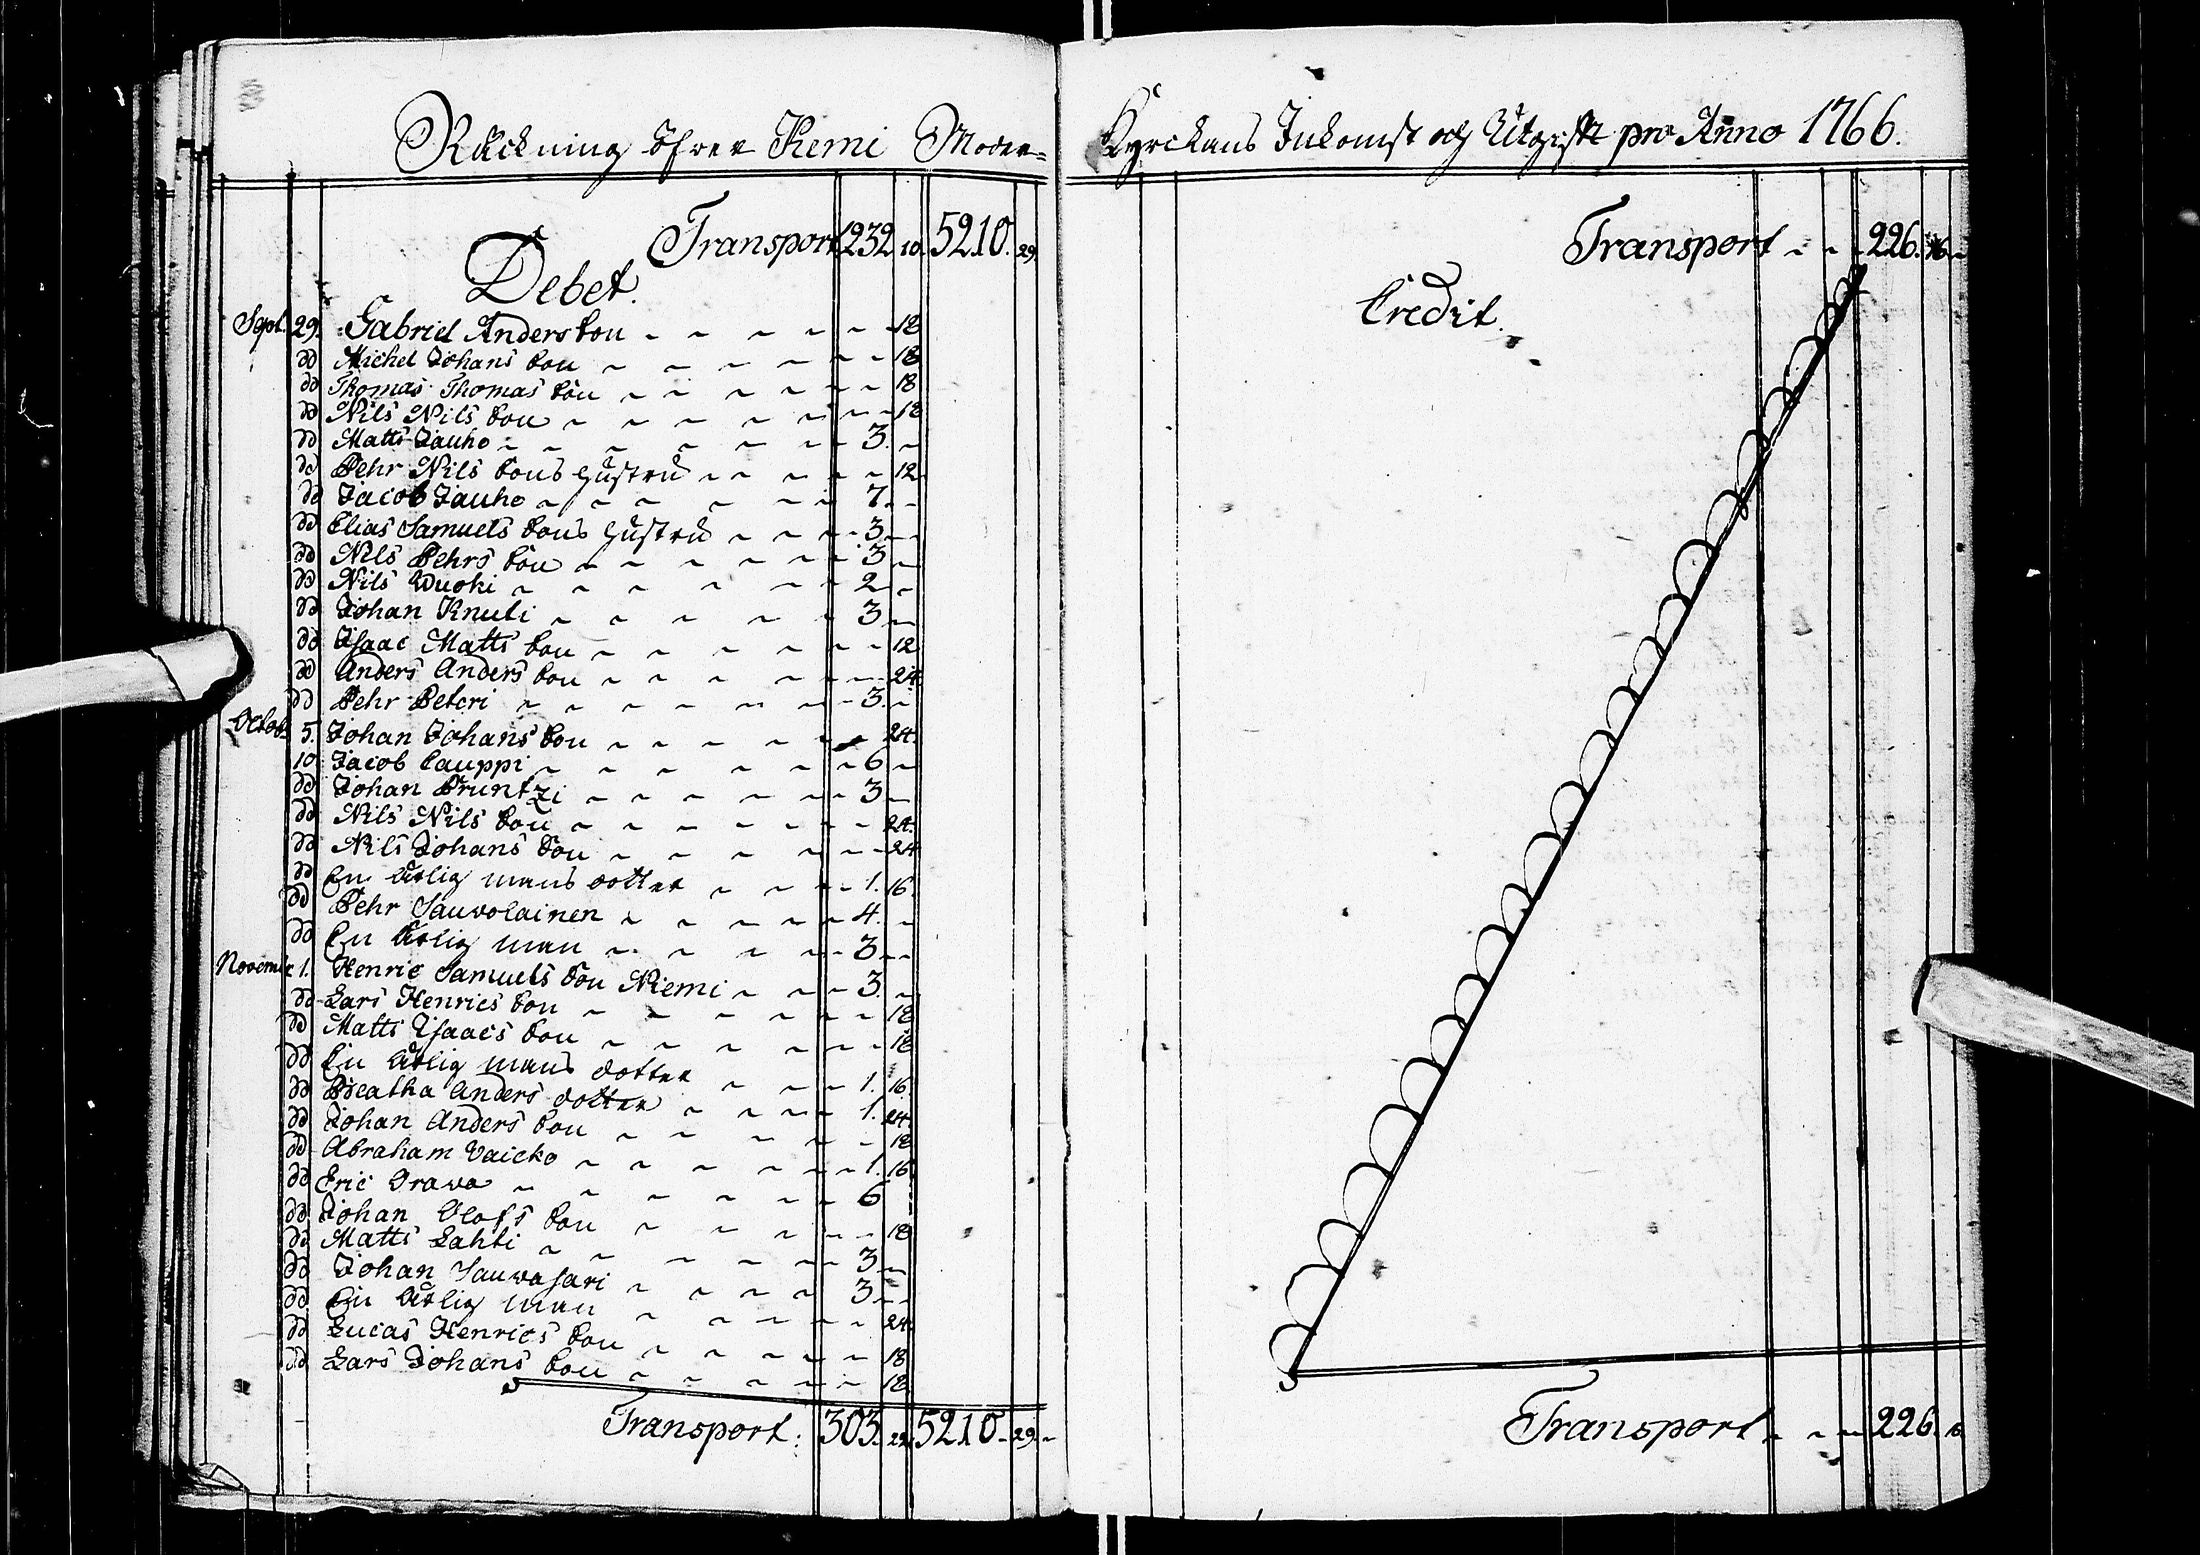 Räckning öfver Kemi Moder=
Transport 232. 10. 5210. 29.
Debet.
Sept. 29. Gabriel Anders son 18
dd Michel Johans son 18
dd Thomas Thomas son 18
dd Nils Nils son 18
dd Matts Jauho 3.
dd Pehr Nils sons hustru 12
dd Jacob Jauho 7.
dd Elias Samuels sons hustru 3.
dd Nils Pehrs son 3
dd Nils Wuoki 2
dd Johan Knuti 3
dd Isaac Matts son 12
dd Anders Anders son 24.
dd Pehr Peteri 3.
Octob. 5. Johan Johans son 24.
10 Jacob Lauppi 6
dd Johan Pruntzi 3
dd Nils Nils son 24.
dd Nils Johans son 24
dd En ärlig mans dotter 1. 16.
dd Pehr Sauvolainen 4.
dd En ärlig man 3
Novemb. 1. Henric Samuels son Niemi 3.
dd Lars Henrics son 18
dd Matts Isaacs son 18
dd En ärlig mans dotter 1. 16.
dd Beatha Anders dotter 1. 24.
dd Johan Anders son 18
dd Abraham Vaicko 1. 16
dd Eric Orawa 6
dd Johan Olofs son 18
dd Matts Lahti 3
dd Johan Sauvasari 3
dd En ärlig man 24.
dd Lucas Henrics son 18
dd Lars Johans son 18
Transport. 303. 22. 5210. 29.
Kyrckans Inkomst och Utgift pro Anno 1766.
Transport 226. 16
Credit.
Transport 226. 16